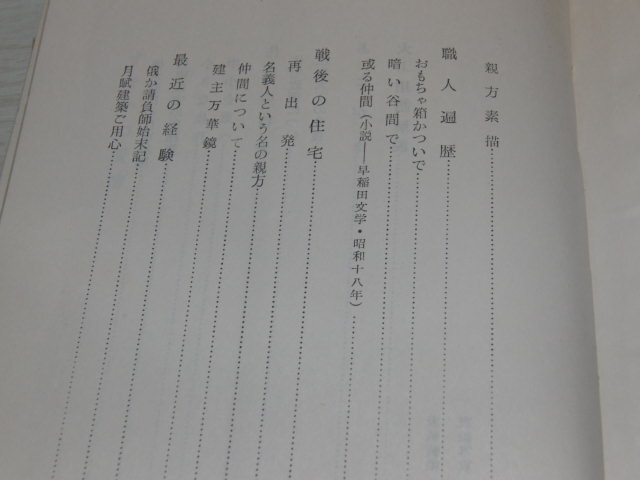 親方素描
職人遍歴
おもちゃ箱かついで
暗い谷間で
或る仲間(小説——早稲田文学・昭和十八年)
戦後の住宅
再出発
名義人という名の親方
仲間について
建主万華鏡
最近の経験
俄か請負師始末記
月賦建築ご用心